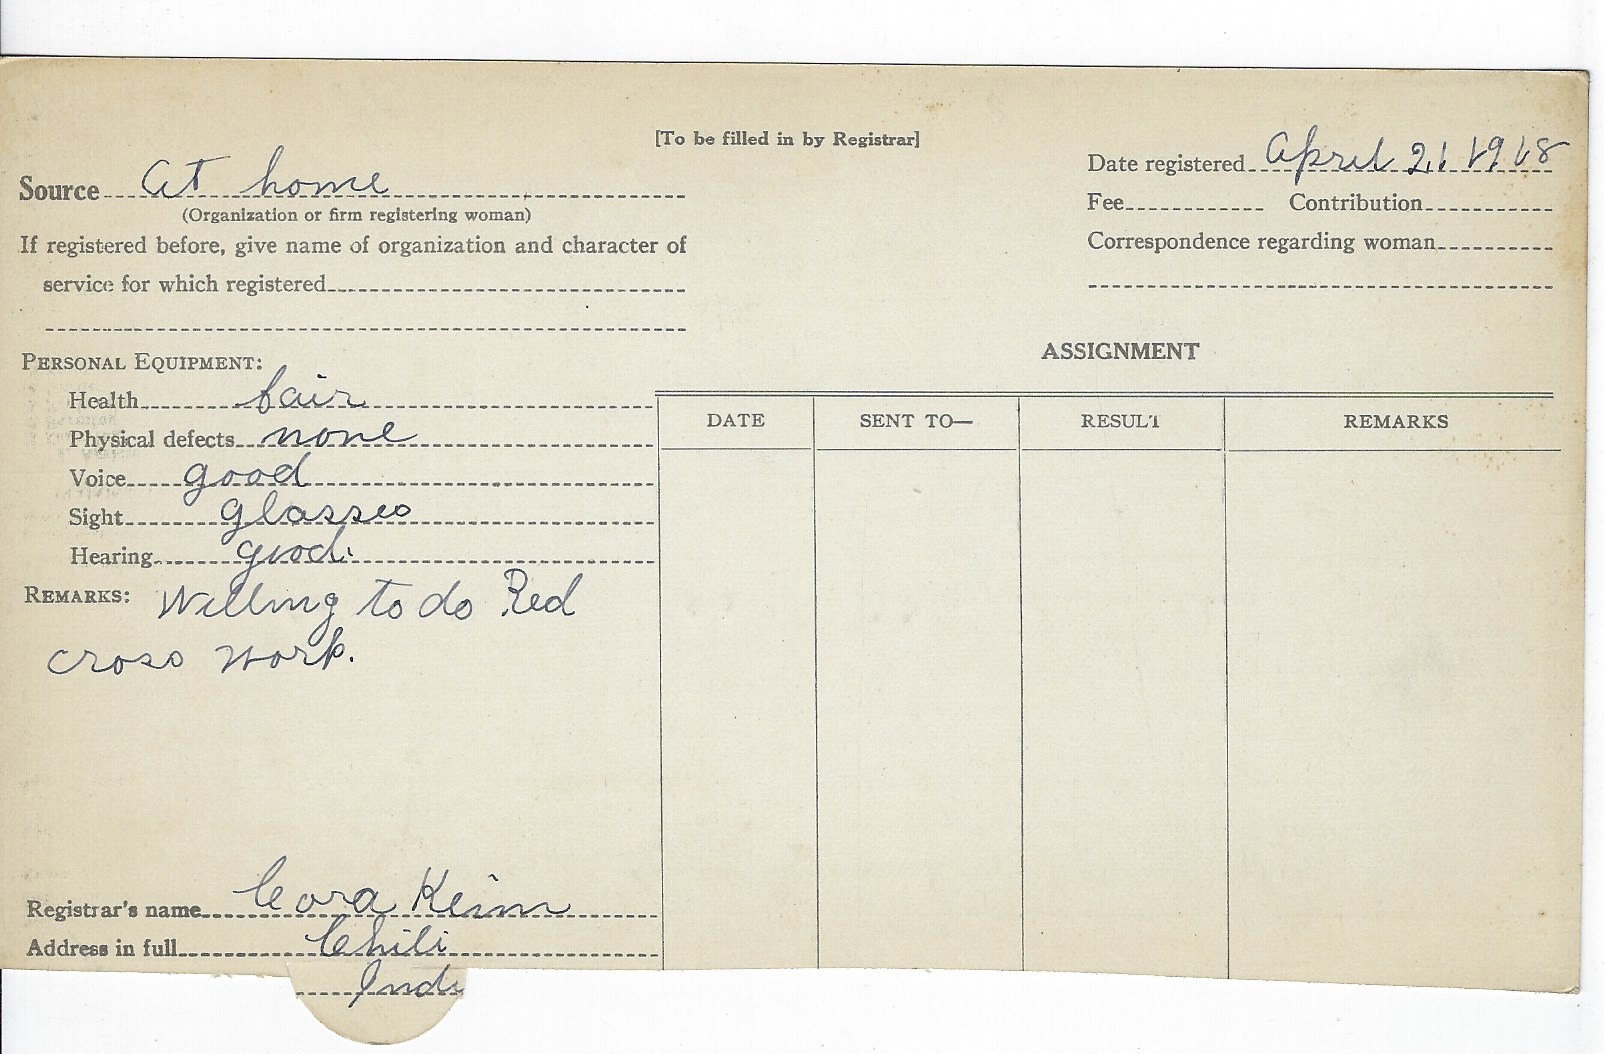 [To be filled in by Registrar]
Source At home
(Organization or firm registering woman)
If registered before, give name of organization and character of
service for which registered
Date registered April 21 1918
Fee Contribution
Correspondence regarding woman
PERSONAL EQUIPMENT:
Health fair
Physical defects none
Voice good
Sight glasses
Hearing good.
REMARKS: Willing to do Red
cross work.
ASSIGNMENT
DATE SENT TO— RESULT REMARKS
Registrar's name Cora Keim
Address in full Chili
Ind